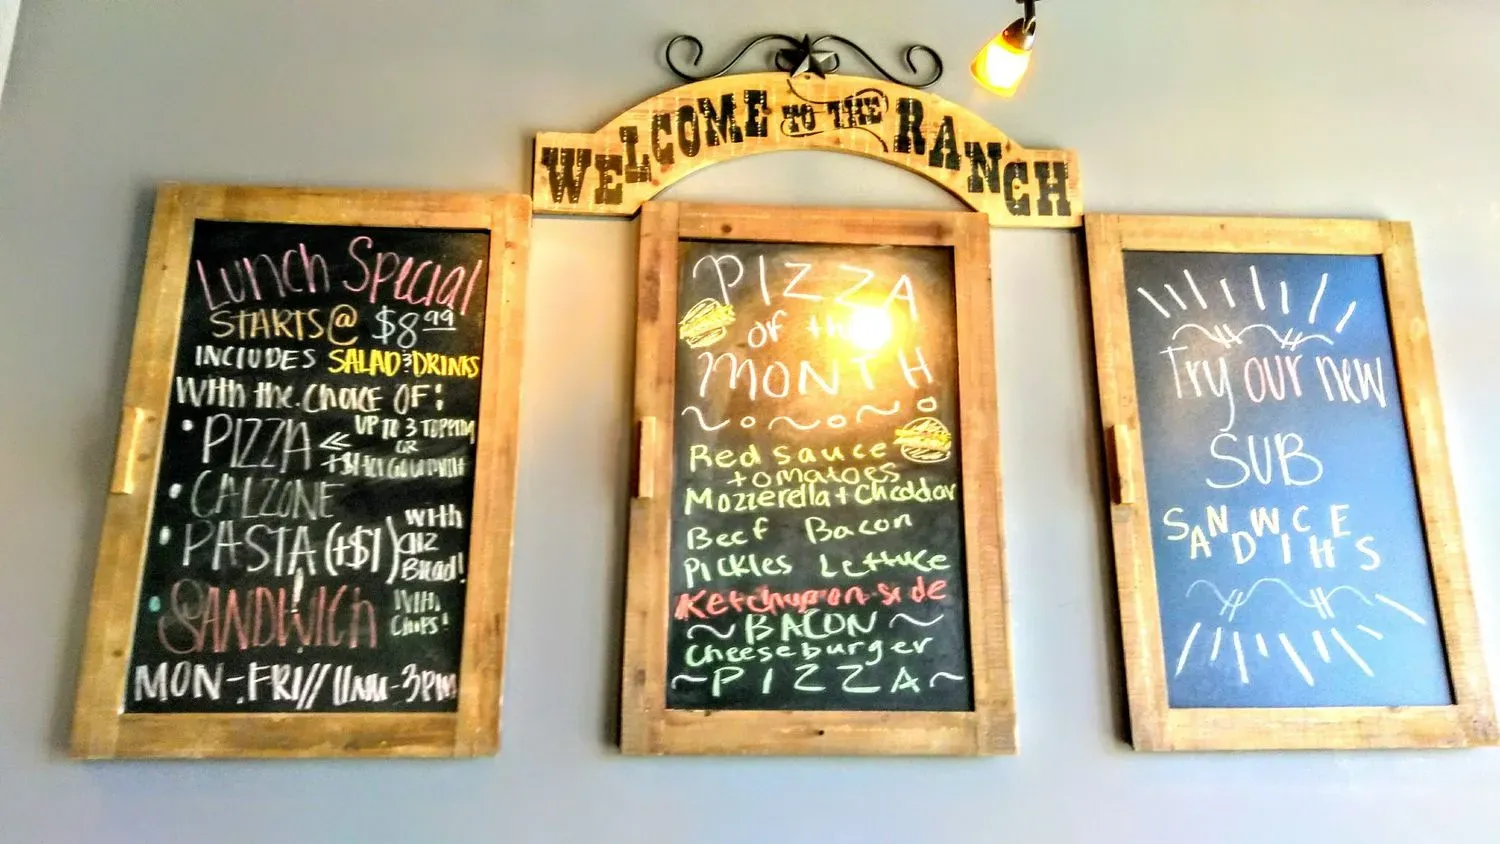 WELCOME TO THE RANCH
LUNCH SPECIAL
STARTS @ $8.99
INCLUDES SALAD & DRINKS
WITH the CHOICE OF:
• PIZZA << UP TO 3 TOPPIN
OR
• CALZONE
• PASTA (+$1) WITH
Bread!
• SANDWICH! WITH
CHIPS!
MON-FRI // 11AM-3PM
PIZZA
of the
MONTH
Red sauce
+ tomatoes
Mozzerella + Cheddar
Beef Bacon
Pickles Lettuce
Ketchup on side
~ BACON ~
Cheeseburger
~ PIZZA ~
Try our new
SUB
SANDWICHES